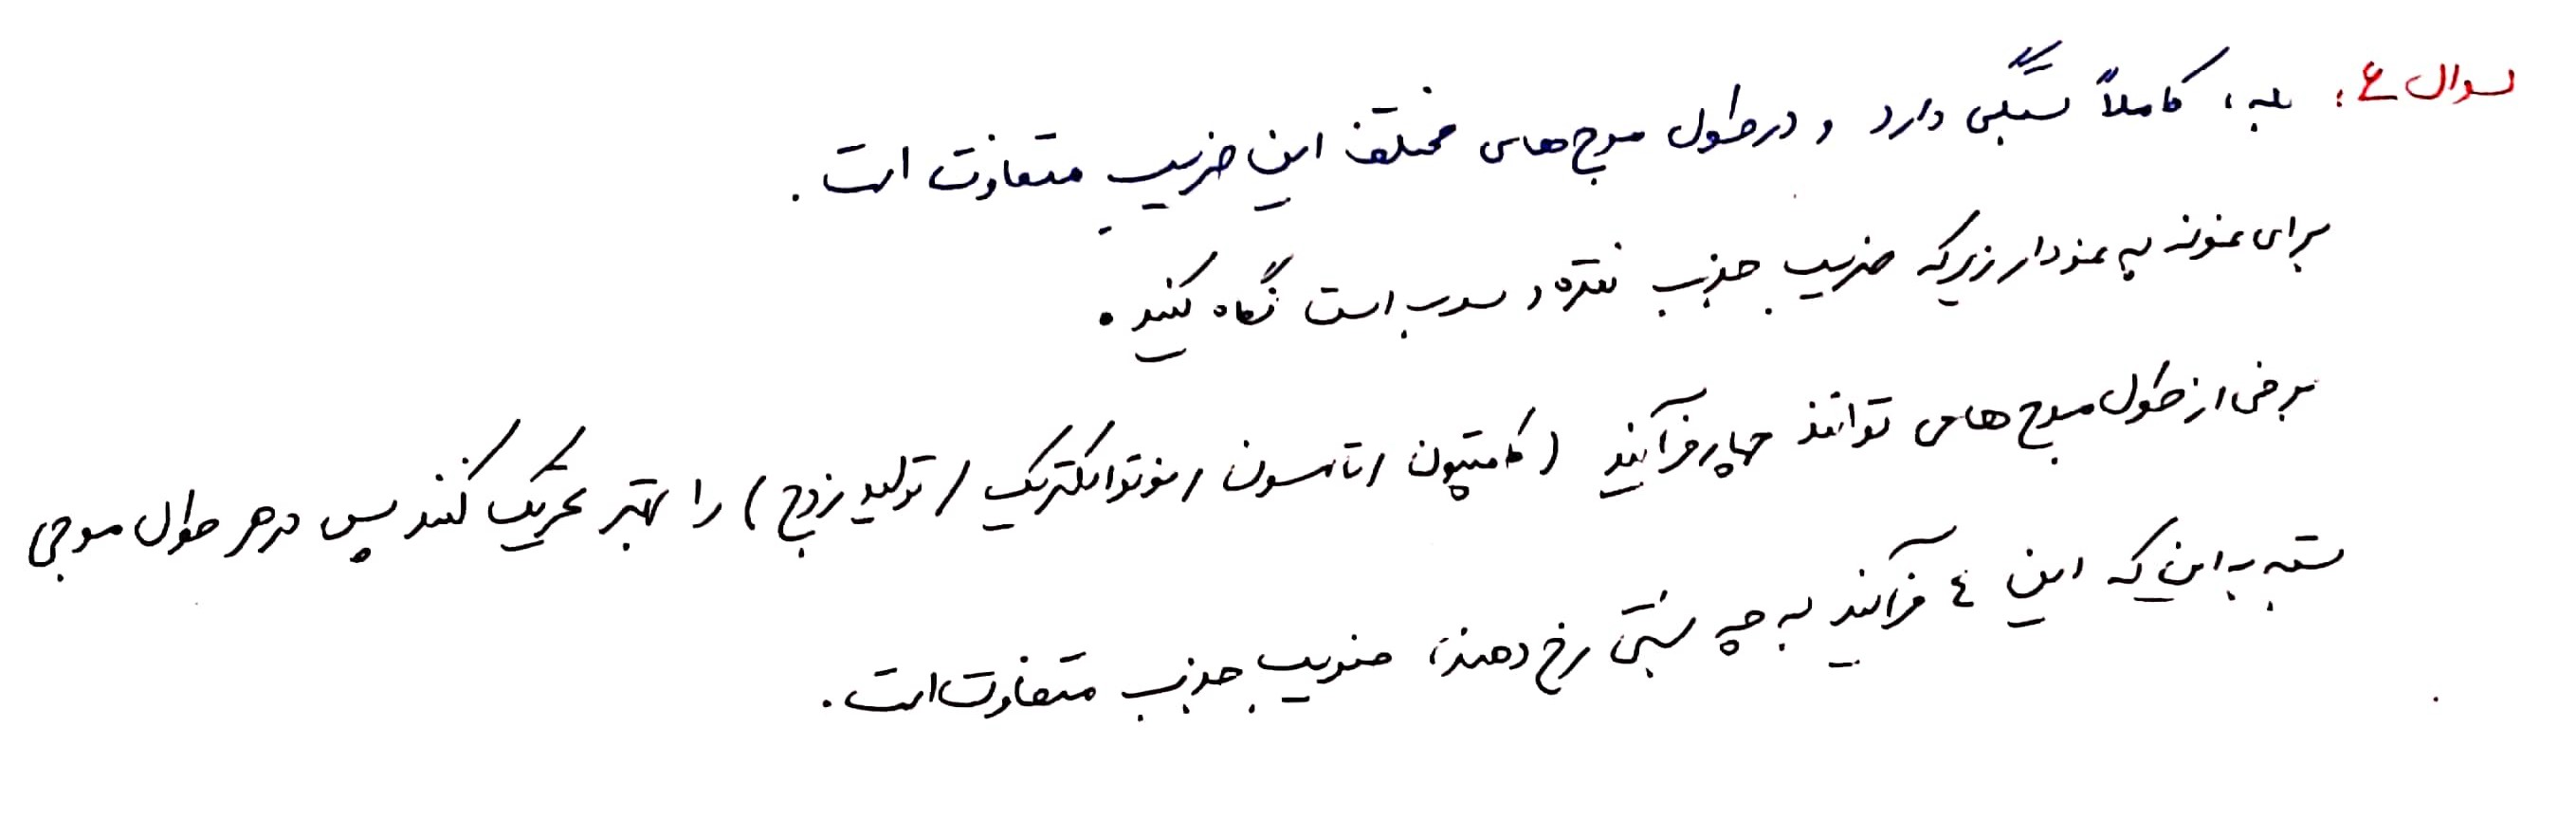 سوال ۴: بله، کاملاً بستگی دارد و در طول موج های مختلف این ضریب متفاوت است.
برای نمونه به نمودار زیر که ضریب جذب نقره و سرب است نگاه کنید.
برخی از طول موج ها می توانند چهار فرآیند (کامپتون / تامسون / فوتوالکتریک / تولید زوج) را بهتر تحریک کنند پس در هر طول موجی
بسته به این که این ۴ فرآیند به چه نسبتی رخ دهند، ضریب جذب متفاوت است.